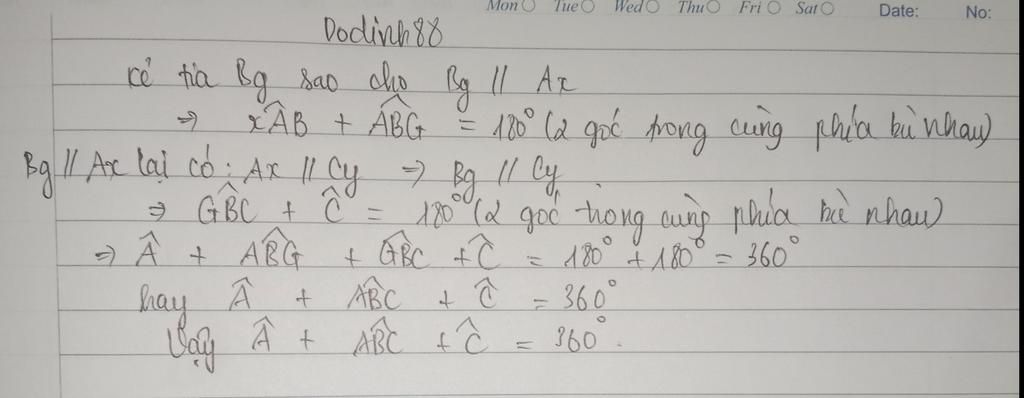 Mon Tue Wed Thu Fri Sat Date: No:
Dodinh88
kẻ tia Bg sao cho Bg // Ax
=> xÂB + ABG = 180° (2 góc trong cùng phía bù nhau)
Bg // Ax lại có: Ax // Cy => Bg // Cy
=> GBC + Ĉ = 180° (2 góc trong cùng phía bù nhau)
=> Â + ABG + GBC + Ĉ = 180° + 180° = 360°
hay Â + ABC + Ĉ = 360°
Vậy Â + ABC + Ĉ = 360°.